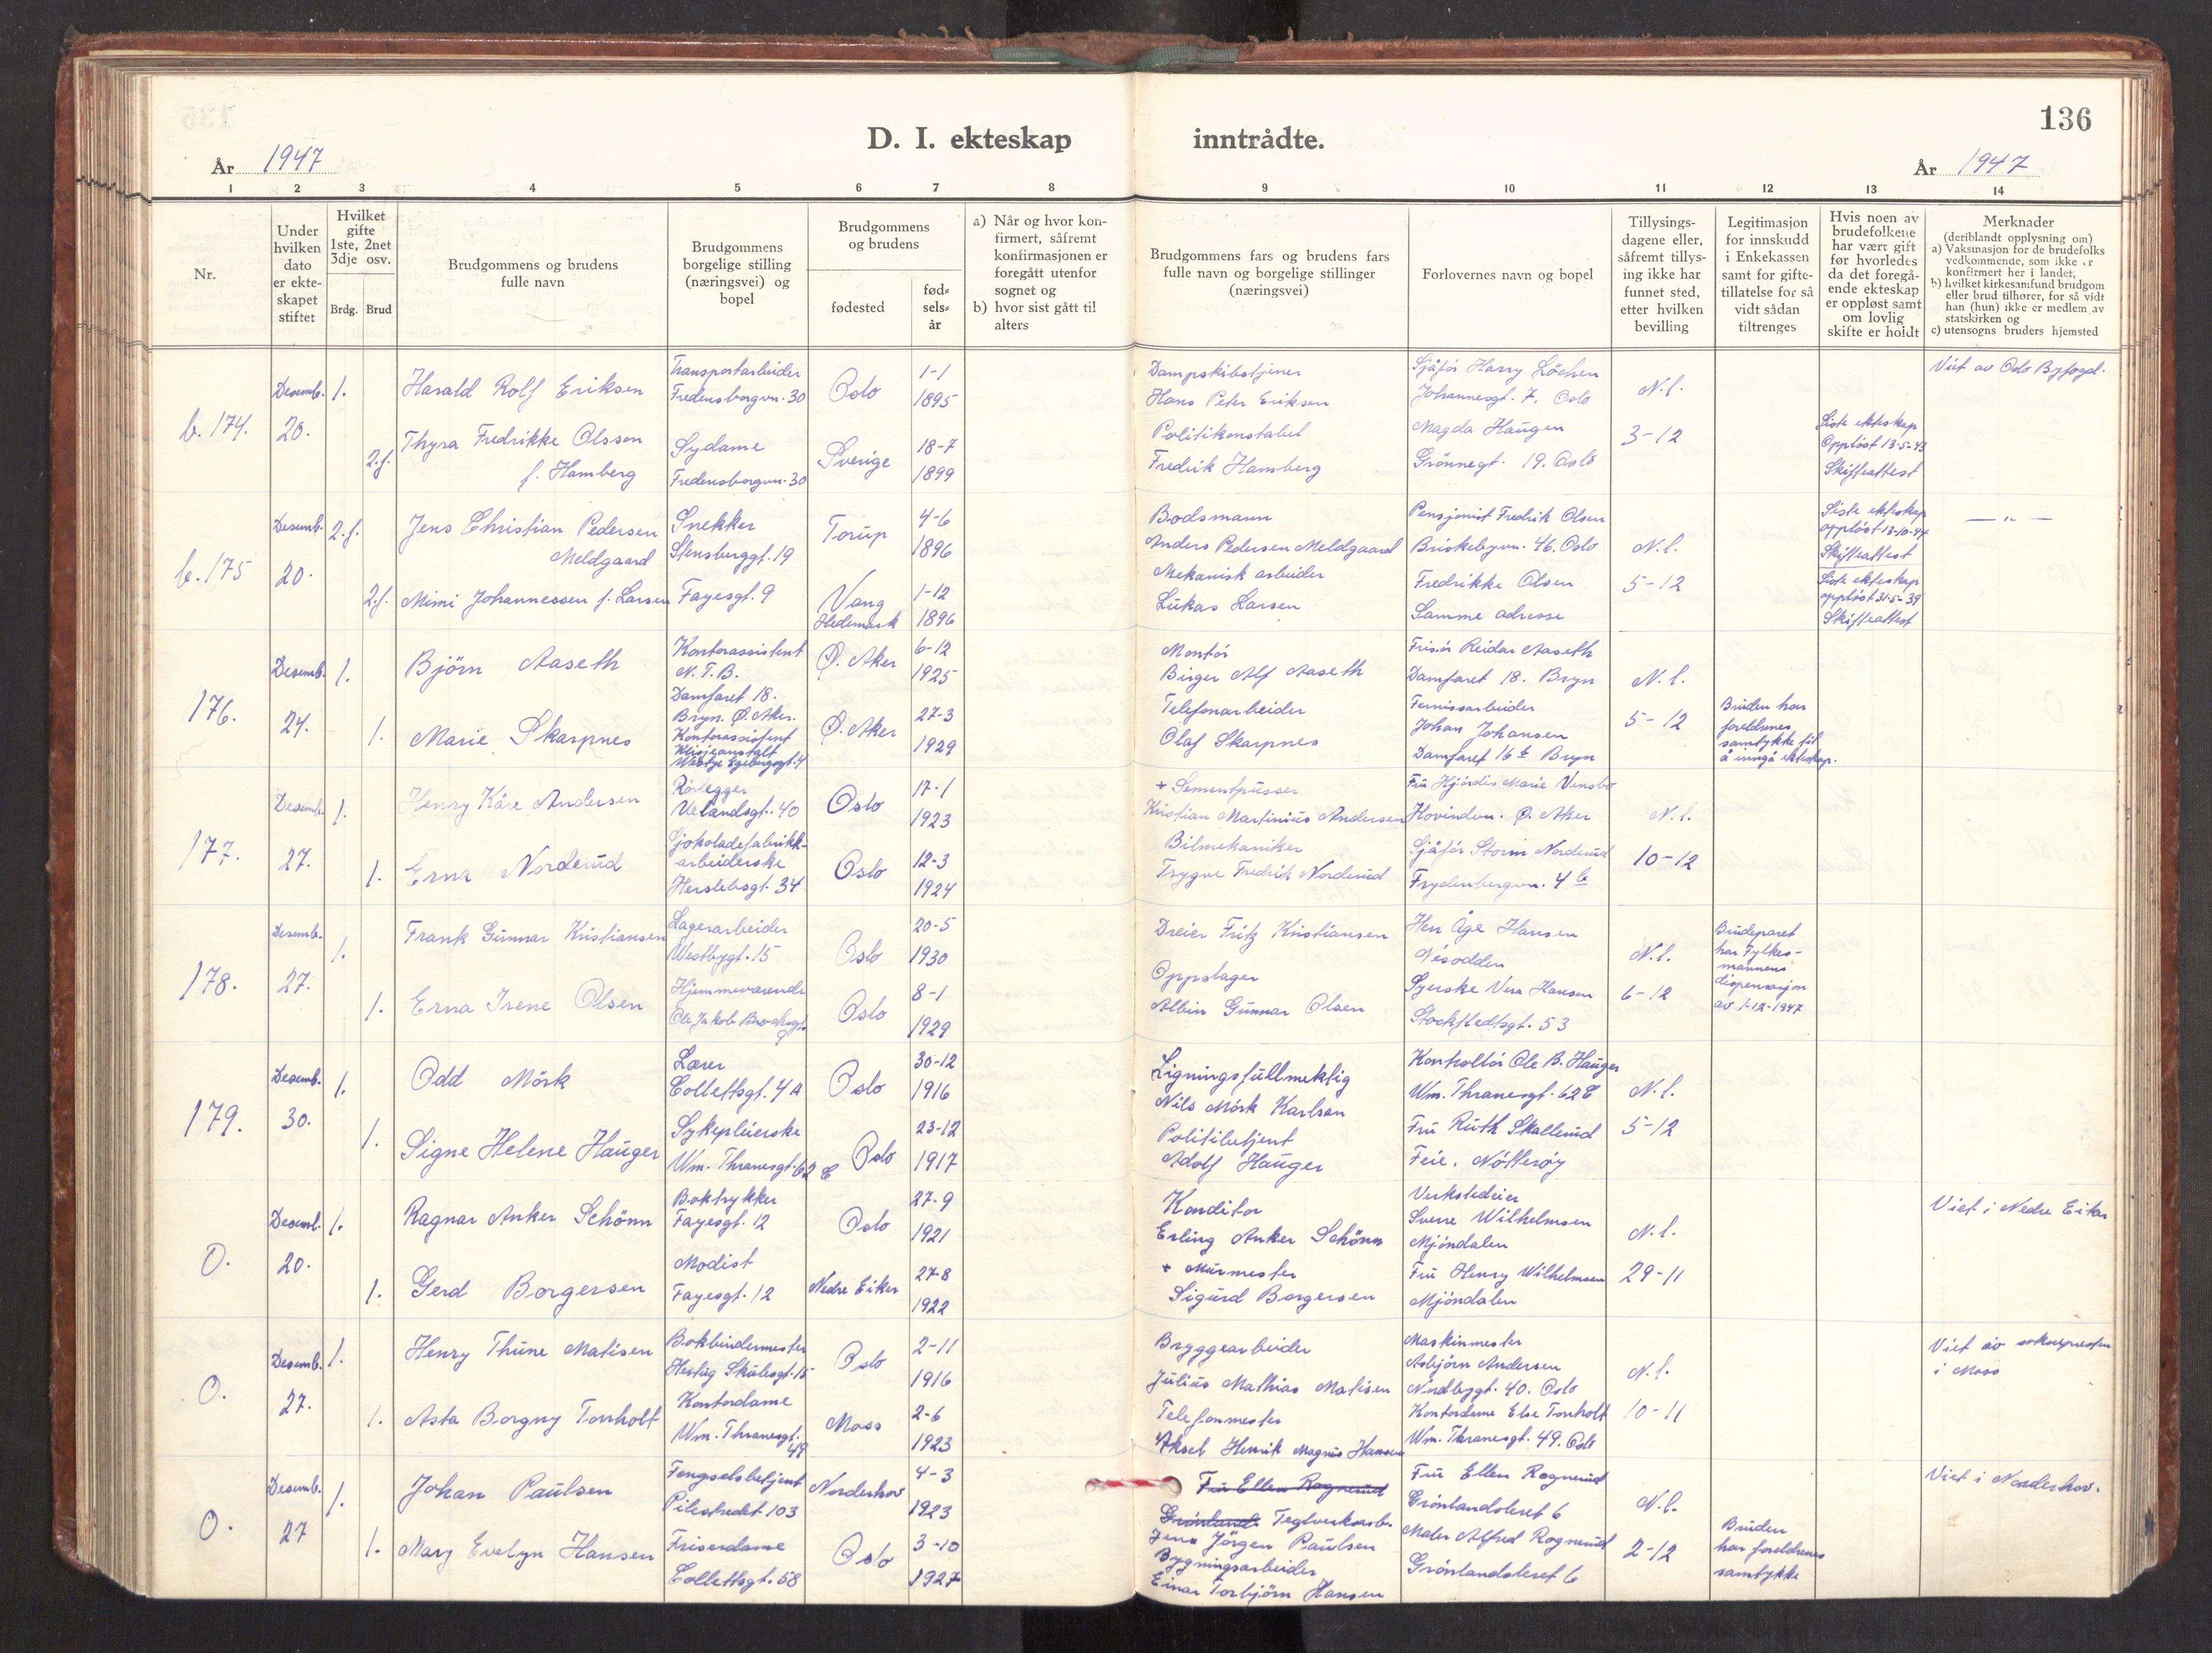 136
D. I. ekteskap inntrådte.
År 1947 År 1947
1 2 3 4 5 6 7 8 9 10 11 12 13 14
Nr.
Under
hvilken
dato
er ekte-
skapet
stiftet
Hvilket
gifte
1ste, 2net
3dje osv.
Brdg. Brud
Brudgommens og brudens
fulle navn
Brudgommens
borgelige stilling
(næringsvei) og
bopel
Brudgommens
og brudens
fødested
fød-
sels-
år
a) Når og hvor kon-
firmert, såfremt
konfirmasjonen er
foregått utenfor
sognet og
b) hvor sist gått til
alters
Brudgommens fars og brudens fars
fulle navn og borgelige stillinger
(næringsvei)
Forlovernes navn og bopel
Tillysings-
dagene eller,
såfremt tillys-
ing ikke har
funnet sted,
etter hvilken
bevilling
Legitimasjon
for innskudd
i Enkekassen
samt for gifte-
tillatelse for så
vidt sådan
tiltrenges
Hvis noen av
brudefolkene
har vært gift
før hvorledes
da det foregå-
ende ekteskap
er oppløst samt
om lovlig
skifte er holdt
Merknader
(deriblandt opplysning om)
a) Vaksinasjon for de brudefolks
vedkommende, som ikke er
konfirmert her i landet,
b) hvilket kirkesamfund brudgom
eller brud tilhører, for så vidt
han (hun) ikke er medlem av
statskirken og
c) utensogns bruders hjemsted
b. 174.
Desemb.
20.
1.
Harald Rolf Eriksen
Transportarbeider
Fredensborgvn. 30
Oslo
1-1
1895
Dampskibstjener
Hans Peter Eriksen
Sjåfør Harry Löchen
Johannesgt. 7. Oslo
N.l.
3-12
Viet av Oslo Byfogd.
2.f.
Thyra Fredrikke Olsson
f. Hamberg
Sydame
Fredensborgvn. 30
Sverige
18-7
1899
Politikonstabel
Fredrik Hamberg
Magda Haugen
Grönnegt. 19. Oslo
Siste ekteskap
Oppløst 13-5-43
Skifteattest
b. 175
Desemb.
20.
2.f.
Jens Christian Pedersen
Meldgaard
Snekker
Stensberggt. 19
Torup
4-6
1896
Bodsmann
Anders Pedersen Meldgaard
Pensjonist Fredrik Olsen
Briskebyvn. 46. Oslo
N.l.
5-12
Siste ekteskap
oppløst 13-10-44
Skifteattest
— " —
2.f.
Mimi Johannessen f. Larsen
Fayesgt. 9
Vang
Hedemark
1-12
1896
Mekanisk arbeider
Lukas Larsen
Fredrikke Olsen
Samme adresse
Siste ekteskap
oppløst 31-5-39
Skifteattest
176.
Desemb.
24.
1.
Björn Aaseth
Kontorassistent
N.T.B.
Damfaret 18.
Bryn. Ø. Aker.
Ø. Aker
6-12
1925
Montör
Birger Alf Aaseth
Frisör Reidar Aaseth
Damfaret 18. Bryn
N.l.
5-12
1.
Marie Skarpnes
Kontorassistent
Klisjeanstalt
Westye Egebergsgt. 4
Ø. Aker
27-3
1929
Telefonarbeider
Olaf Skarpnes
Fernissarbeider
Johan Johansen
Damfaret 16 b Bryn
Bruden har
foreldrenes
samtykke til
å inngå ekteskap.
177.
Desemb.
27.
1.
Henry Kåre Andersen
Rörlegger
Uelandsgt. 40
Oslo
17-1
1923
+ Sementpusser
Kristian Martinius Andersen
Fru Hjördis Marie Vensbo
Hovindvn. Ø. Aker
N.l.
10-12
1.
Erna Norderud
Sjokoladefabrikk-
arbeiderske
Herslebsgt. 34
Oslo
12-3
1924
Bilmekaniker
Trygve Fredrik Norderud
Sjåför Storm Norderud
Frydenbergvn. 4 b
178.
Desemb.
27.
1.
Frank Gunnar Kristiansen
Lagerarbeider
Westbygt. 15
Oslo
20-5
1930
Dreier Fritz Kristiansen
Herr Åge Hansen
Nesodden
N.l.
6-12
Brudeparet
har Fylkes-
mannens
dispensasjon
av 1-12-1947
1.
Erna Irene Olsen
Hjemmeværende
Ole Jakob Brochsgt.
9
Oslo
8-1
1929
Oppslager
Albin Gunnar Olsen
Syerske Vera Hansen
Stockfledtsgt. 53
179.
Desemb.
30.
1.
Odd Mörk
Lærer
Collettsgt. 4 A
Oslo
30-12
1916
Ligningsfullmektig
Nils Mörk Karlsen
Kontrollör Ole B. Hauger
Wm. Thranesgt. 62 C
N.l.
5-12
1.
Signe Helene Hauger
Sykepleierske
Wm. Thranesgt. 62 C
Oslo
23-12
1917
Politibetjent
Adolf Hauger
Fru Ruth Skallerud
Feie, Nötteröy
O.
Desemb.
20.
1.
Ragnar Anker Schönn
Boktrykker
Fayesgt. 12
Oslo
27-9
1921
Konditor
Erling Anker Schönn
Verkstedeier
Sverre Wilhelmsen
Mjöndalen
N.l.
29-11
Viet i Nedre Eiker
1.
Gerd Borgersen
Modist
Fayesgt. 12
Nedre Eiker
27-8
1922
+ Murmester
Sigurd Borgersen
Fru Henry Wilhelmsen
Mjöndalen
O.
Desemb.
27.
1.
Henry Thune Matisen
Bokbindermester
Hertug Skulesgt. 15
Oslo
2-11
1916
Bryggearbeider
Julius Mathias Matisen
Maskinmester
Asbjörn Andersen
Nordbygt. 40. Oslo
N.l.
10-11
Viet av soknepresten
i Moss
1.
Asta Borgny Torrholt
Kontordame
Wm. Thranesgt.
49
Moss
2-6
1923
Telefonmester
Aksel Henrik Magnus Hansen
Kontordame Else Torrholt
Wm. Thranesgt. 49. Oslo
O.
Desemb.
27
1.
Johan Paulsen
Fengselsbetjent
Pilestredet 103
Norderhov
4-3
1923
Fru Ellen Rognerud
Grönlands Teglverksarb.
Jens Jörgen Paulsen
Fru Ellen Rognerud
Grönlandsleret 6
N.l.
2-12
Viet i Norderhov.
1.
Mary Evelyn Hansen
Friserdame
Collettsgt. 58
Oslo
3-10
1927
Bygningsarbeider
Einar Torbjörn Hansen
Maler Alfred Rognerud
Grönlandsleret 6
Bruden
har foreldrenes
samtykke